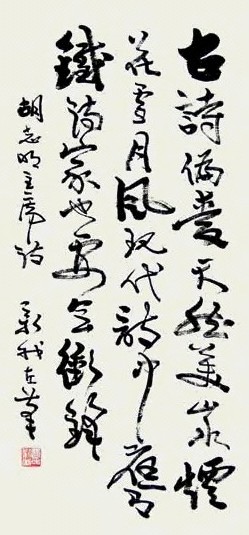 古詩偏愛天然美山水煙
花雪月風現代詩中應有
鐵詩家也要會衝鋒
胡志明主席詩